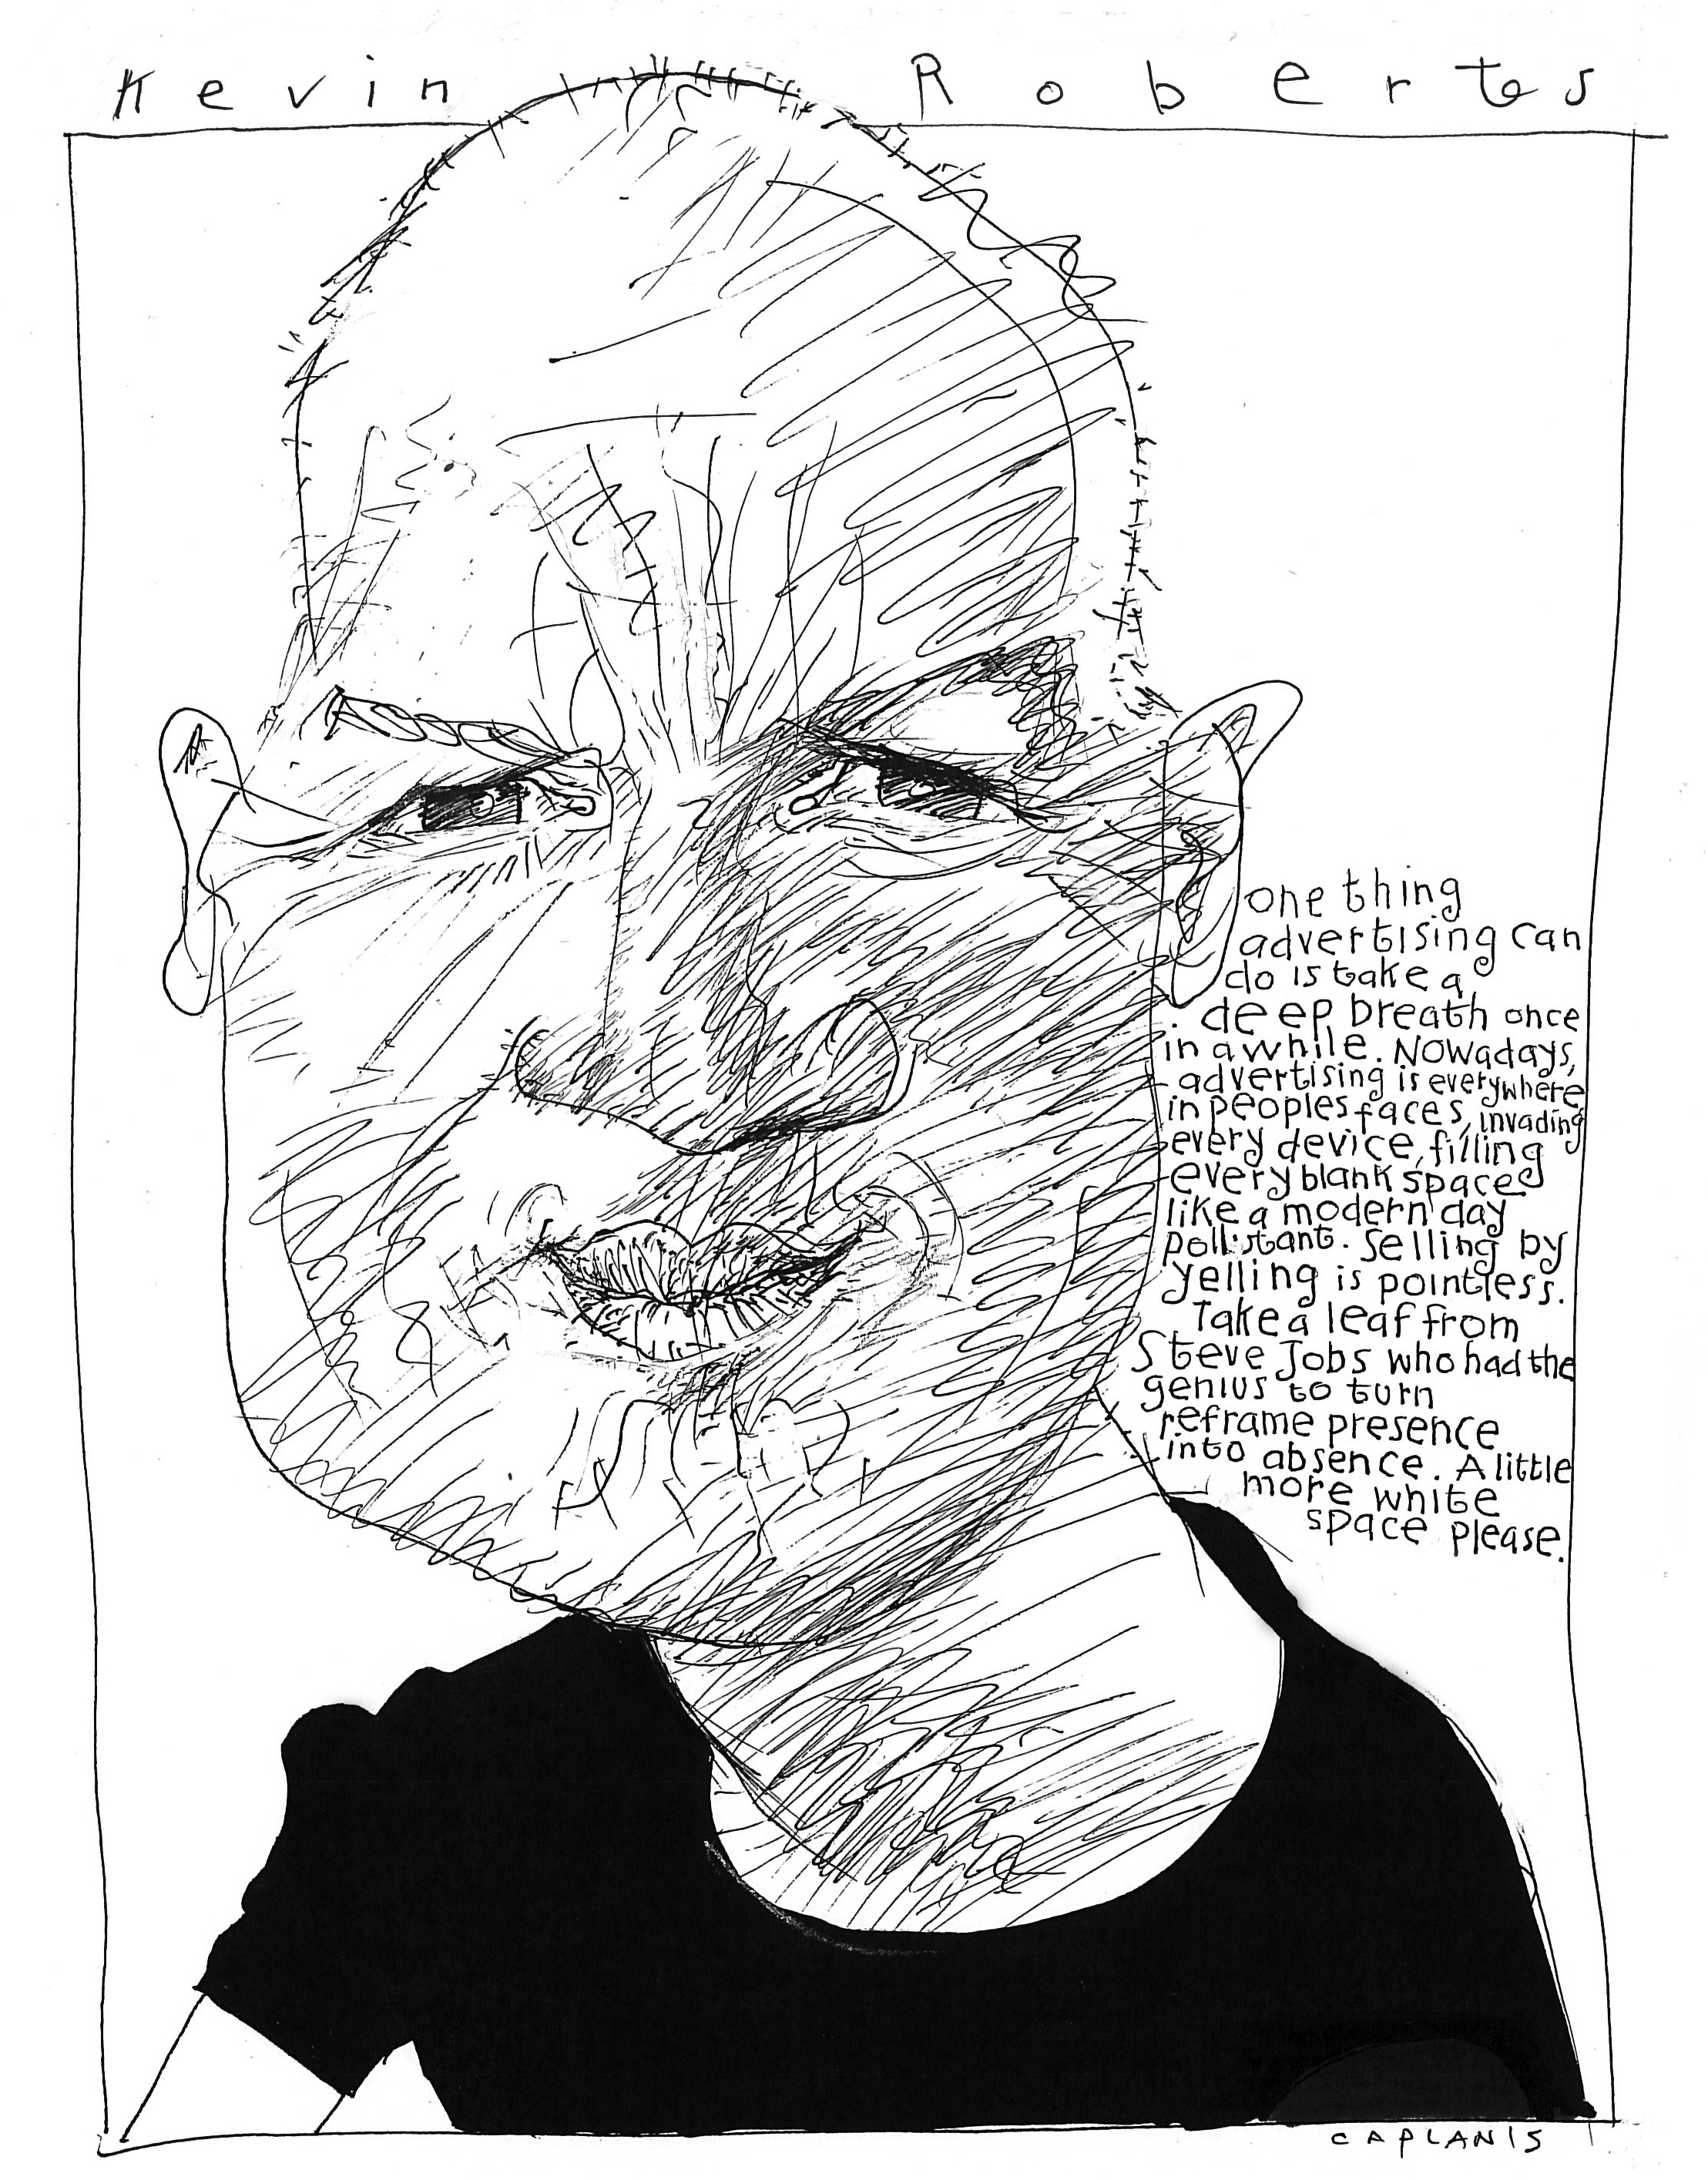 Kevin Roberts
one thing
advertising can
do is take a
deep breath once
in a while. Nowadays,
advertising is everywhere
in peoples faces, invading
every device, filling
every blank space
like a modern day
pollutant. Selling by
yelling is pointless.
Take a leaf from
Steve Jobs who had the
genius to turn
reframe presence
into absence. A little
more white
space please.
CAPLANIS